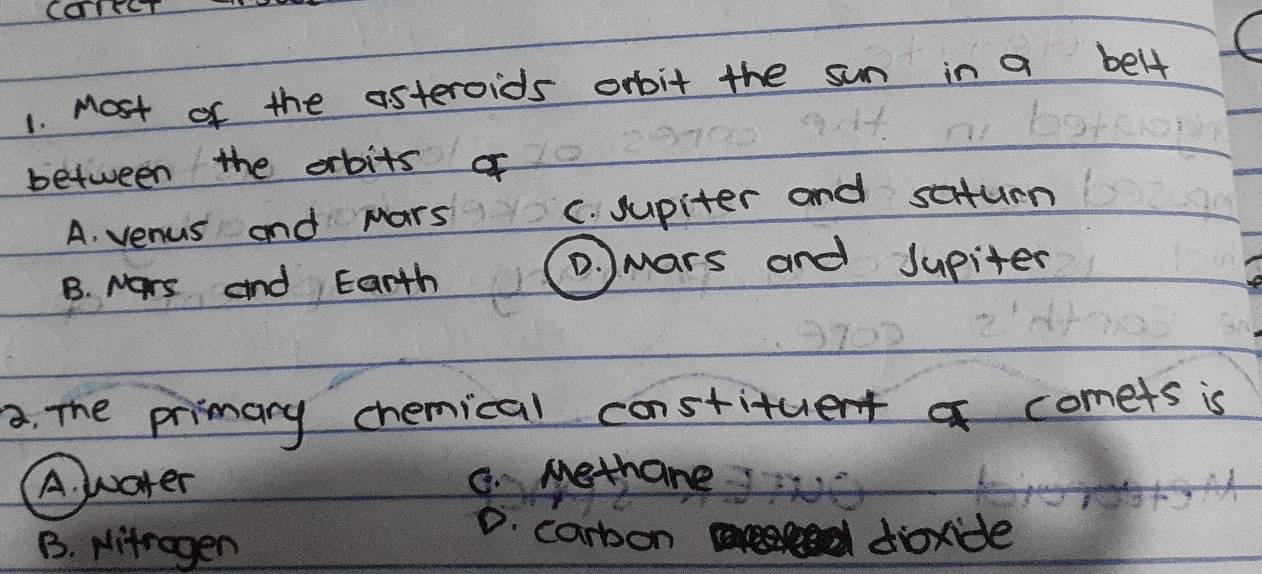 correct
1. Most of the asteroids orbit the sun in a belt
between the orbits of
A. Venus and Mars C. Jupiter and saturn
B. Mars and Earth D. Mars and Jupiter
2. The primary chemical constituent of comets is
A. Water C. Methane
B. Nitrogen D. carbon dioxide